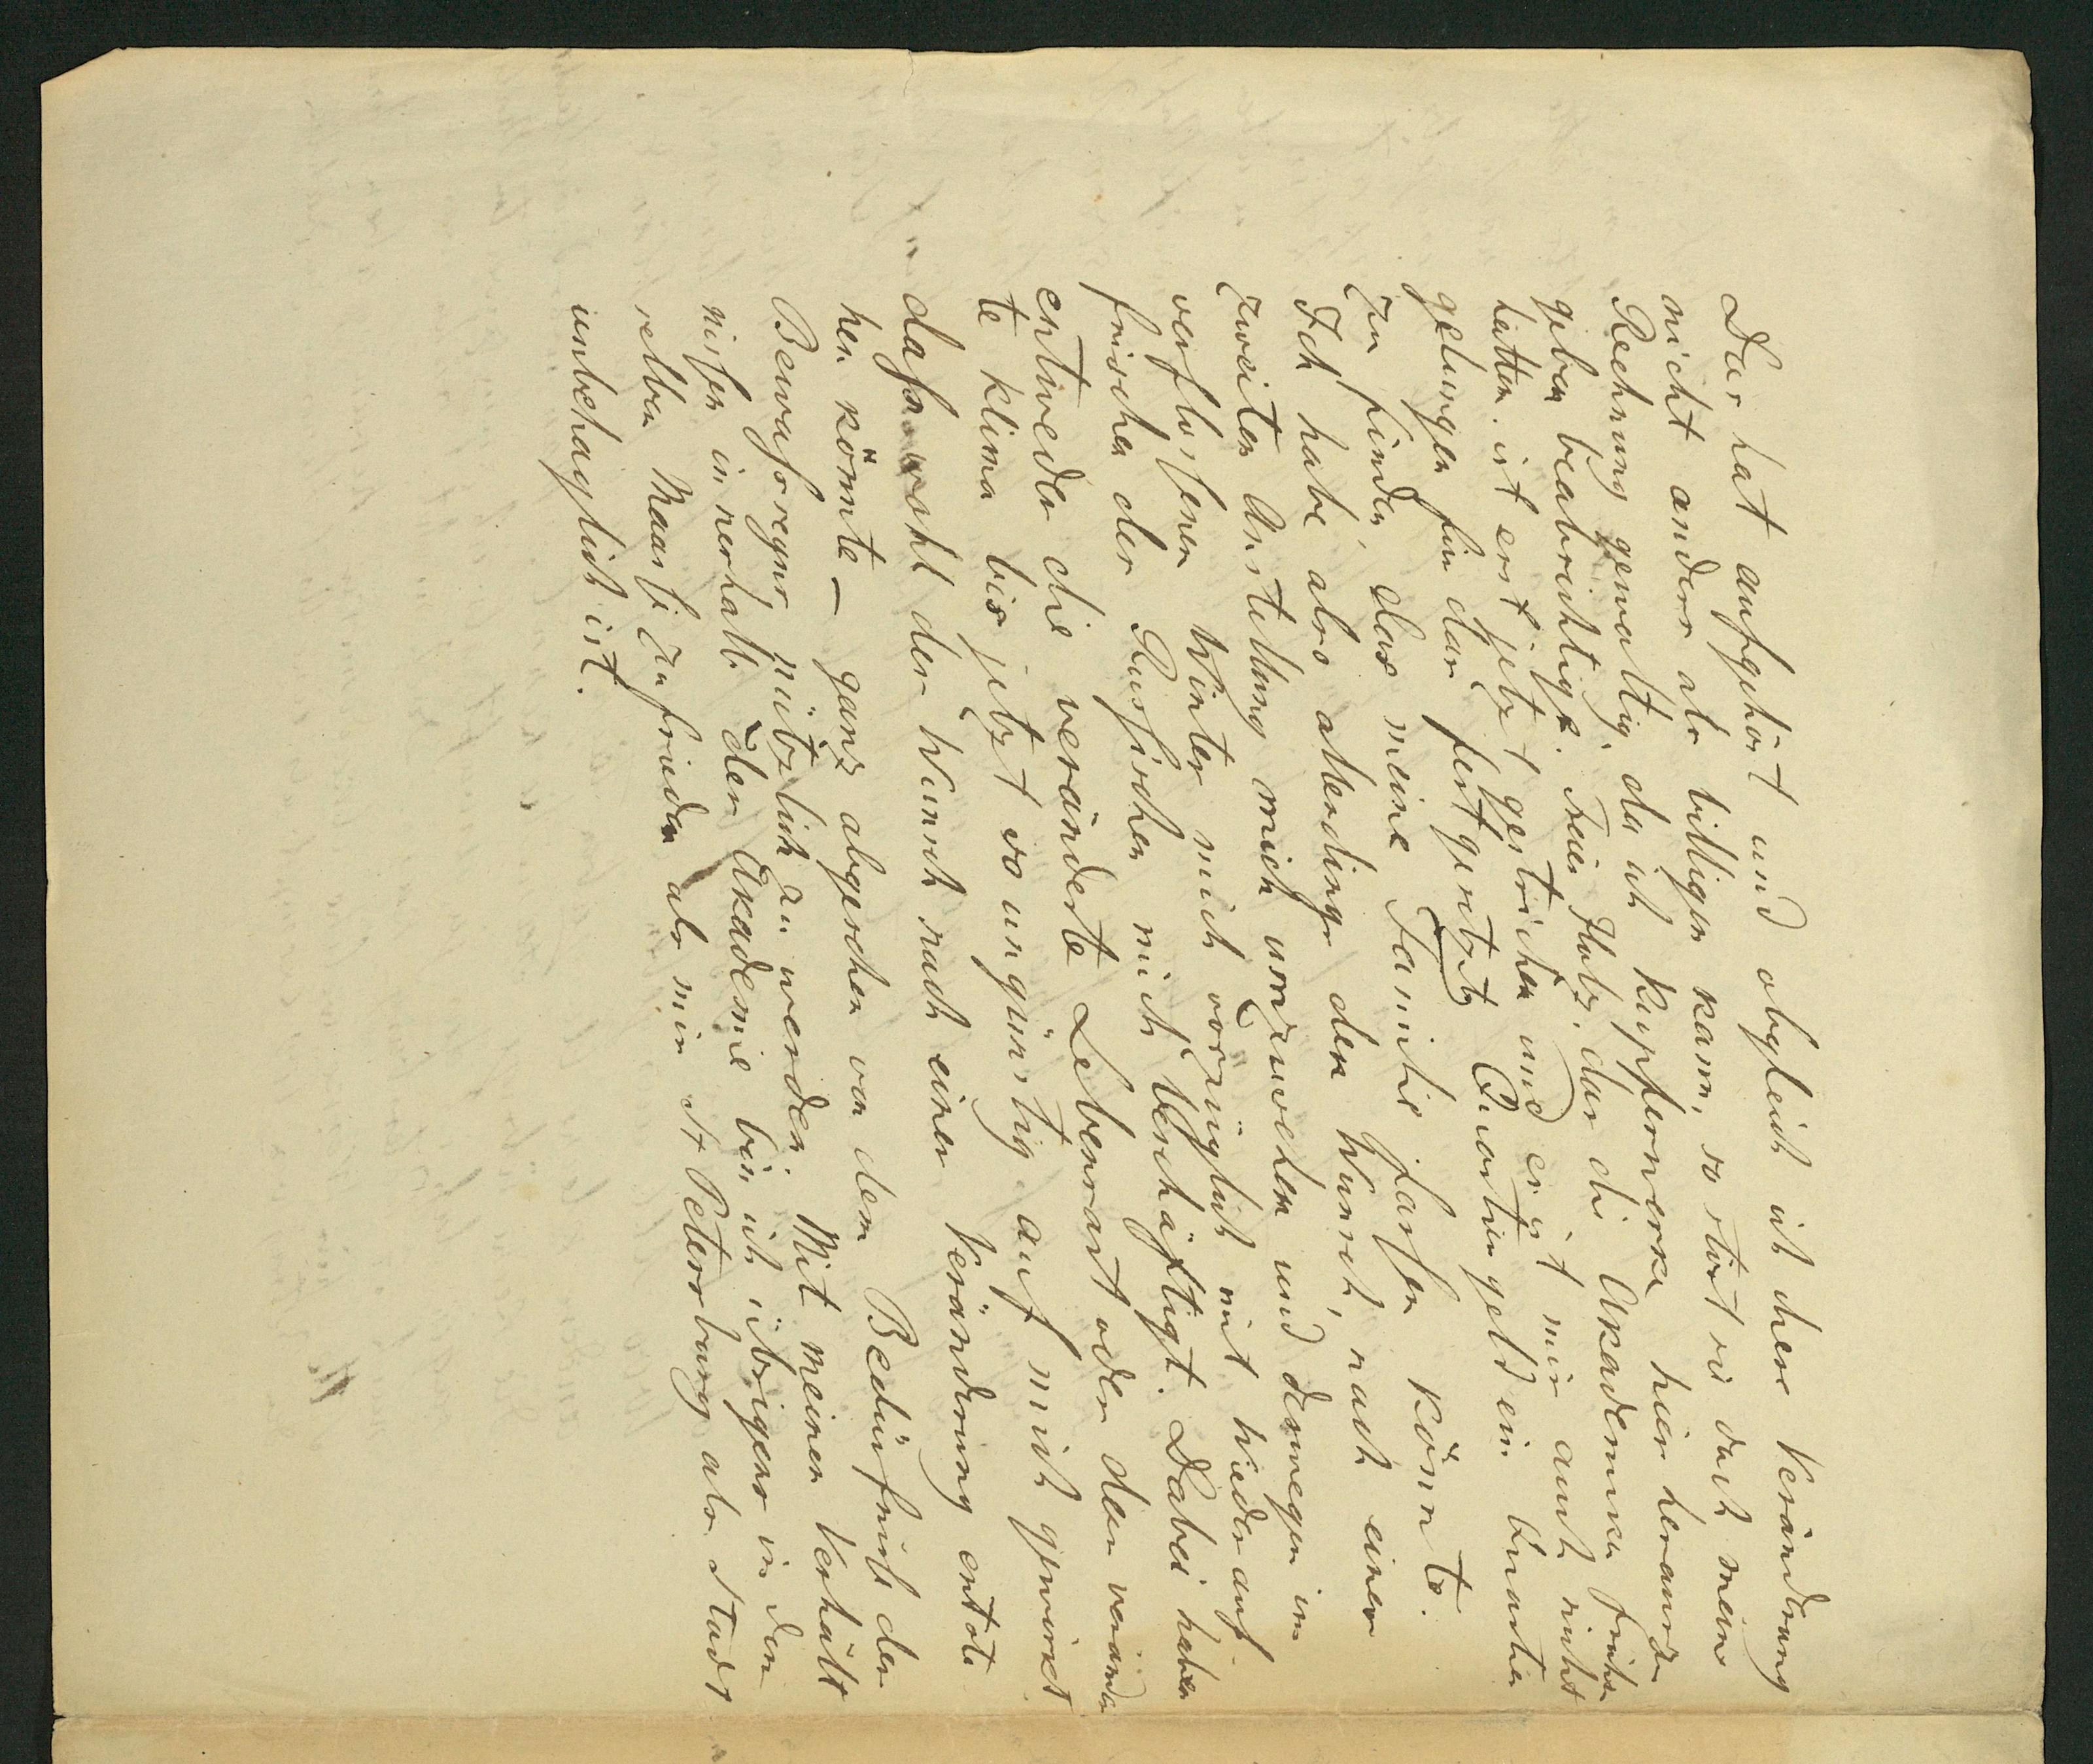 Das hat aufgehört und obgleich ich diese Veränderung
nicht anders als billigen kann, so stört sie doch meine
Rechnung gewaltig, da ich Kupferwerke hier herauszu
geben beabsichtige. Freies Holz, das die Akademiker früher
hatten, ist erst jetzt gestrichen und es ist mir auch nicht
gelungen für das festgesetzte Quartiergeld ein Quartier
zu finden, das meine Familie fassen könnte.
Ich habe also allerdings den Wunsch, nach einer
zweiten Anstellung mich umzusehen und deswegen im
verflossenen Winter mich vorzüglich mit Wiederauf
frischen des Russischen mich beschäftigt. Dabei haben
entweder die veränderte Lebensart oder das veränder
te Klima bis jetzt so ungünstig auf mich gewirkt
dass wohl der Wunsch nach einer Veränderung entste
hen könnte – ganz abgesehen von dem Bedürfniss des
Bewusstseyns nützlich zu werden. Mit meinen Verhält
nissen innerhalb der Akademie bin ich übrigens in dem
selben Maasse zufrieden als mir St Petersburg als Stadt
unbehaglich ist.